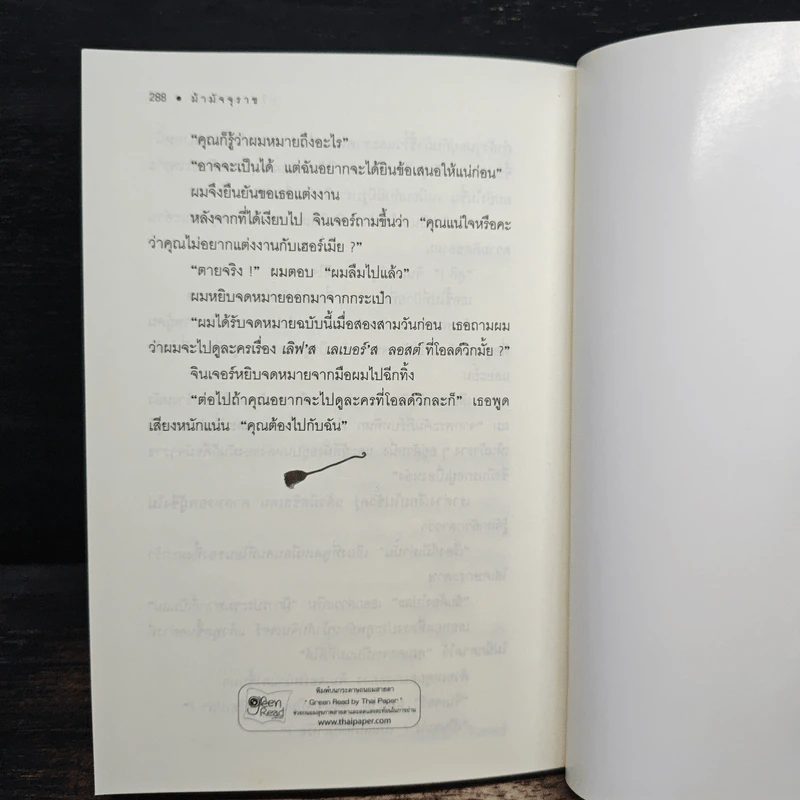 288 • ม้ามัจจุราช
“คุณก็รู้ว่าผมหมายถึงอะไร”
“อาจจะเป็นได้ แต่ฉันอยากจะได้ยินข้อเสนอให้แน่ก่อน”
ผมจึงยืนยันขอเธอแต่งงาน
หลังจากที่ได้เงียบไป จินเจอร์ถามขึ้นว่า “คุณแน่ใจหรือคะ
ว่าคุณไม่อยากแต่งงานกับเฮอร์เมีย ?”
“ตายจริง !” ผมตอบ “ผมลืมไปแล้ว”
ผมหยิบจดหมายออกมาจากกระเป๋า
“ผมได้รับจดหมายฉบับนี้เมื่อสองสามวันก่อน เธอถามผม
ว่าผมจะไปดูละครเรื่อง เลิฟ’ส เลเบอร์’ส ลอสต์ ที่โอลด์วิกมั้ย ?”
จินเจอร์หยิบจดหมายจากมือผมไปฉีกทิ้ง
“ต่อไปถ้าคุณอยากจะไปดูละครที่โอลด์วิกละก็” เธอพูด
เสียงหนักแน่น “คุณต้องไปกับฉัน”
green Read
พิมพ์บนกระดาษถนอมสายตา
" Green Read by Thai Paper "
www.thaipaper.com